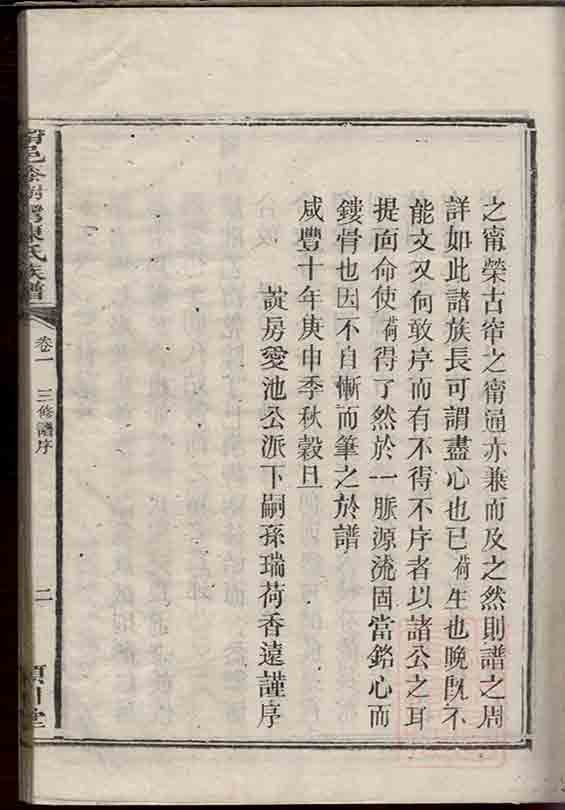 之甯榮古帘之甯通亦兼而及之然則譜之周
詳如此諸族長可謂盡心也已荷生也晚既不
能文又何敢序而有不得不序者以諸公之耳
提面命使荷得了然於一脈源流固當銘心而
鏤骨也因不自慚而筆之於譜
咸豐十年庚申季秋穀旦
房愛池公派下嗣孫瑞荷香遠謹序
陳氏族譜
卷一 三修譜序
二
堂